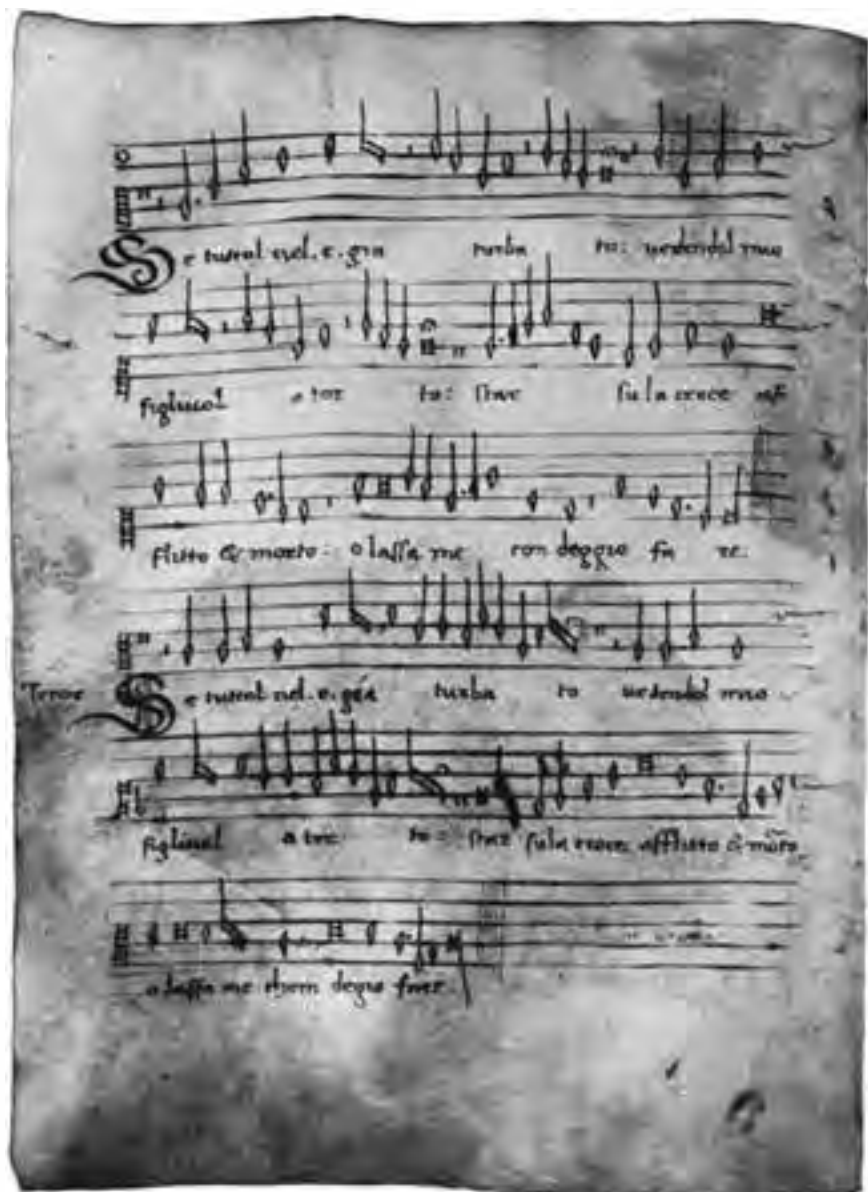 Se turba to: uedendol mio
figliuol a tor to: stare su la croce af
flitto & morto: o lassa me con deggio fa re:
Tenor Se turba to uedendol mio
figliuol a tor to: stare su la croce afflitto & morto
o lassa me chom degio fare.